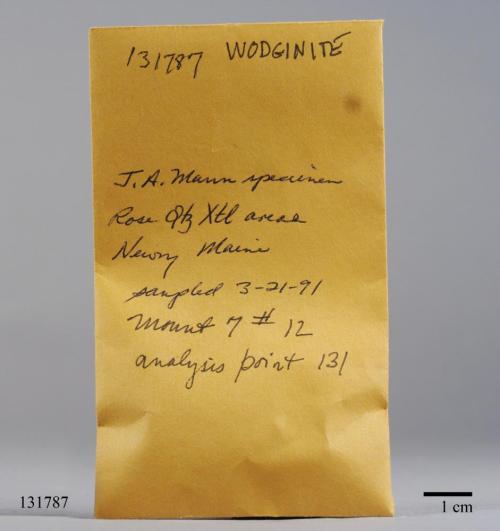 131787 WODGINITE
J.A. Mann specimen
Rose Qtz Xtl area
Newry Maine
sampled 3-21-91
Mount 7 # 12
analysis point 131
131787
1 cm